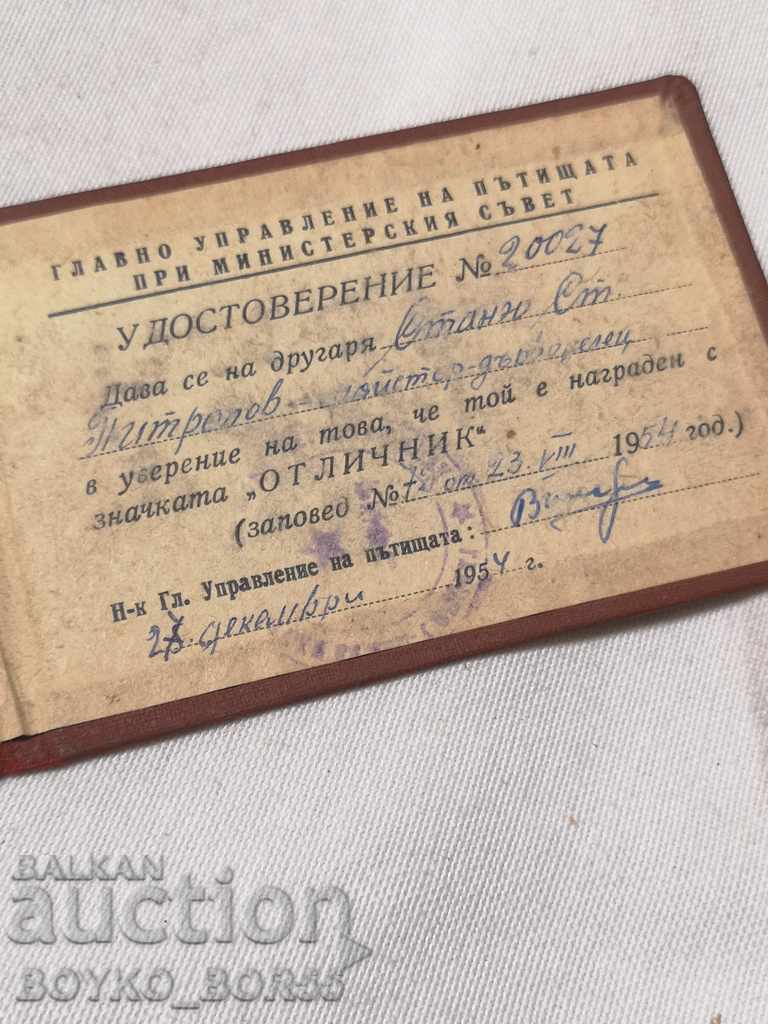 ГЛАВНО УПРАВЛЕНИЕ НА ПЪТИЩАТА
ПРИ МИНИСТЕРСКИЯ СЪВЕТ
УДОСТОВЕРЕНИЕ № 20027
Дава се на другаря Станю Ст.
майстор-дърворезец
в уверение на това, че той е награден с
значката „ОТЛИЧНИК“
(заповед № 78 от 23. VIII 1954 год.)
Н-к Гл. Управление на пътищата:
декември 1954 г.
BALKAN
auction
BOYKO_BOR55